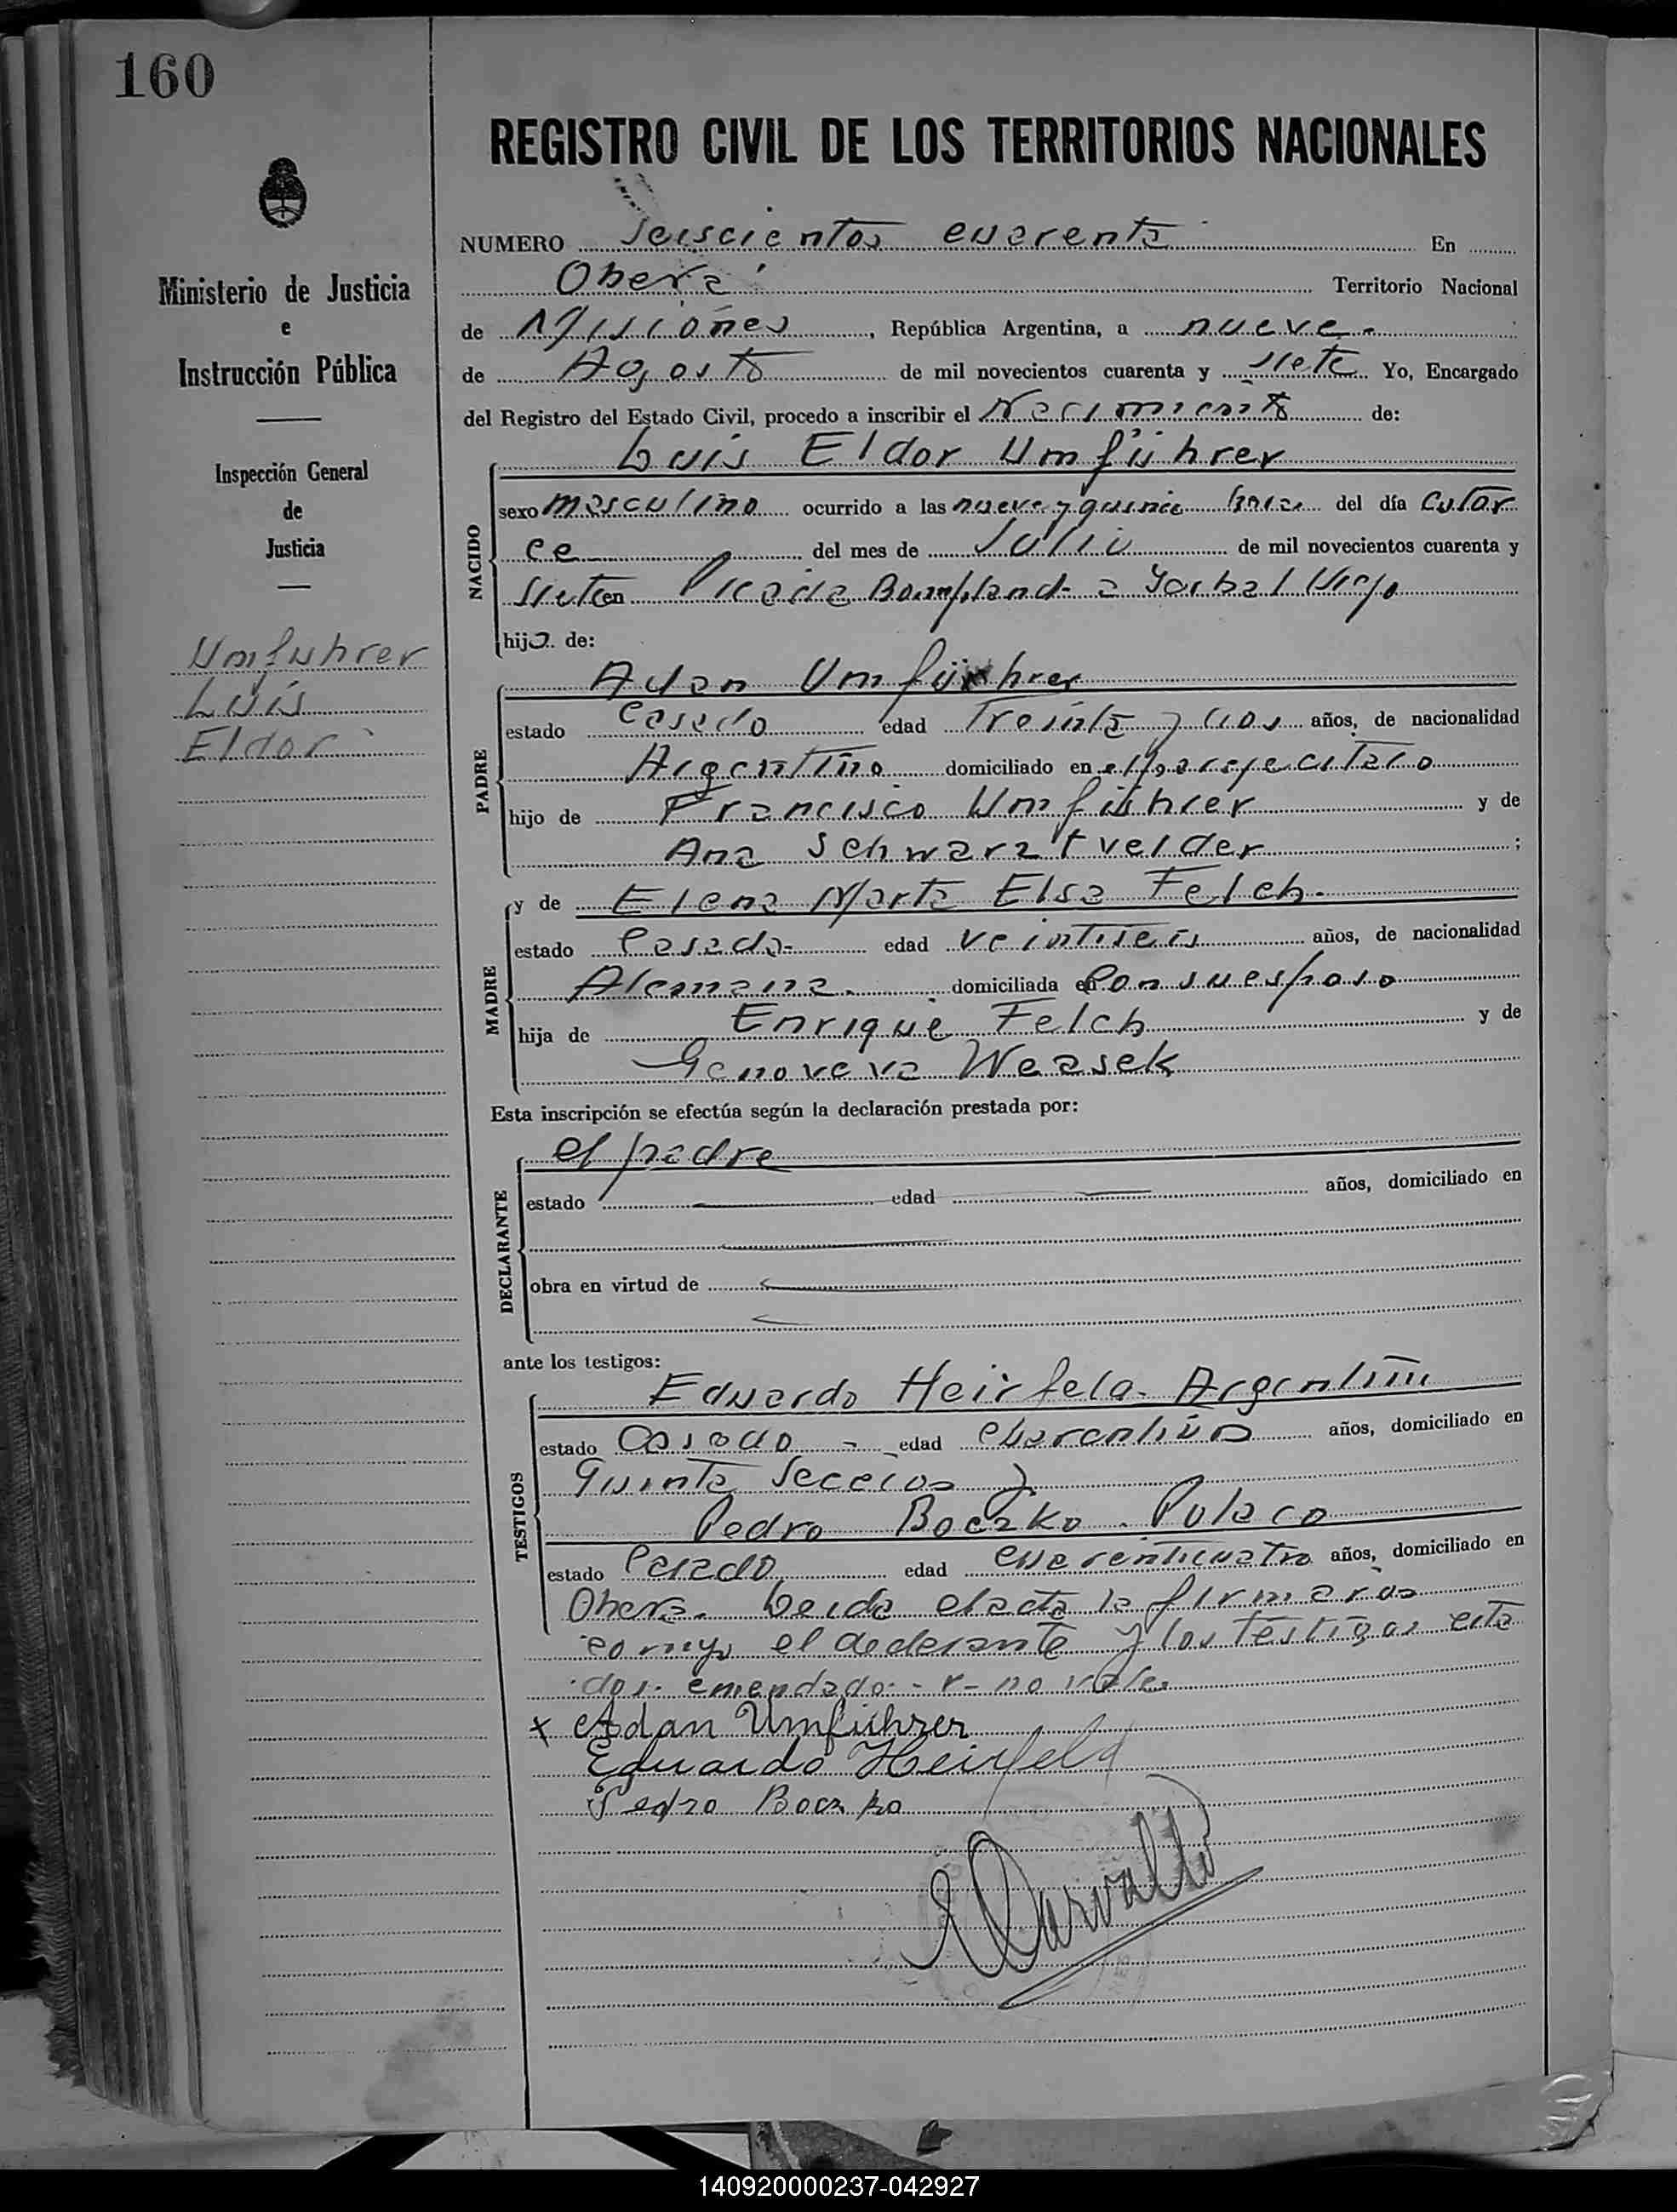 160
REGISTRO CIVIL DE LOS TERRITORIOS NACIONALES
Ministerio de Justicia
e
Instrucción Pública
Inspección General
de
Justicia
Umfuhrer
Luis
Eldor
NUMERO Seiscientos cuarenta En
Oberá Territorio Nacional
de Misiones, República Argentina, a nueve.
de Agosto de mil novecientos cuarenta y siete Yo, Encargado
del Registro del Estado Civil, procedo a inscribir el Nacimiento de:
NACIDO
Luis Eldor Umführer
sexo masculino ocurrido a las nueve y quince horas del día Cator
ce del mes de Julio de mil novecientos cuarenta y
siete en Picada Bompland a Yerbal Viejo
hijo de:
PADRE
Adan Umführer
estado Casado edad Treinta y dos años, de nacionalidad
Argentino domiciliado en el
hijo de Francisco Umführer y de
Ana Schwarztvelder;
MADRE
y de Elena Marta Elsa Felch.
estado Casada- edad veintiseis años, de nacionalidad
Alemana. domiciliada en Con su esposo
hija de Enrique Felch y de
Genoveva Weasek
Esta inscripción se efectúa según la declaración prestada por:
DECLARANTE
el padre
estado edad años, domiciliado en
obra en virtud de
ante los testigos:
TESTIGOS
Eduardo Heirfeld. Argentino
estado Casado - edad cuarentiún años, domiciliado en
Quinta Seccion y
Pedro Boczko. Polaco
estado Casado edad cuarenticuatro años, domiciliado en
Oberá. Leida el acta la firmaron
conmigo el declarante y los testigos cita
dos. emendado: - r- no vale.
x Adan Umführer
Eduardo Heirfeld
Pedro Boczko
140920000237-042927